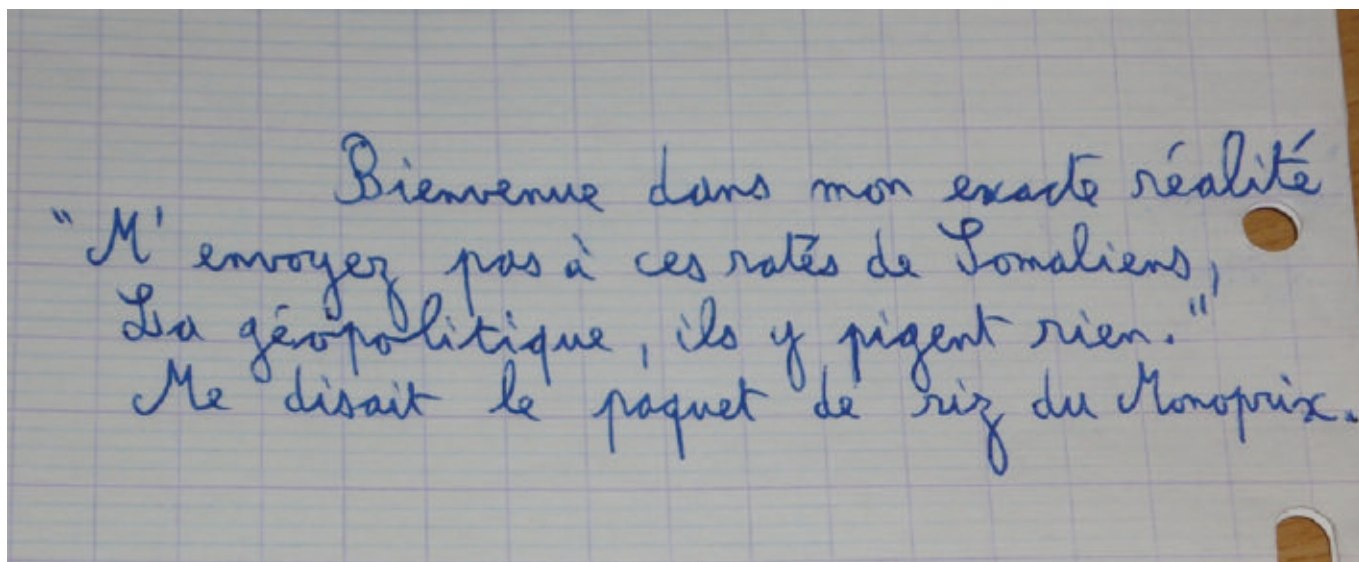 Bienvenue dans mon exacte réalité
"M'envoyez pas à ces ratés de Somaliens,
La géopolitique, ils y pigent rien."
Me disait le paquet de riz du Monoprix.